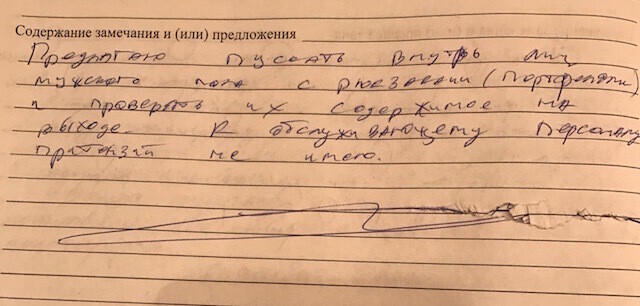 Содержание замечания и (или) предложения
Предлагаю пускать внутрь лиц
мужского пола с рюкзаками (портфелями)
и проверять их содержимое на
выходе. К обслуживающему персоналу
притензий не имею.